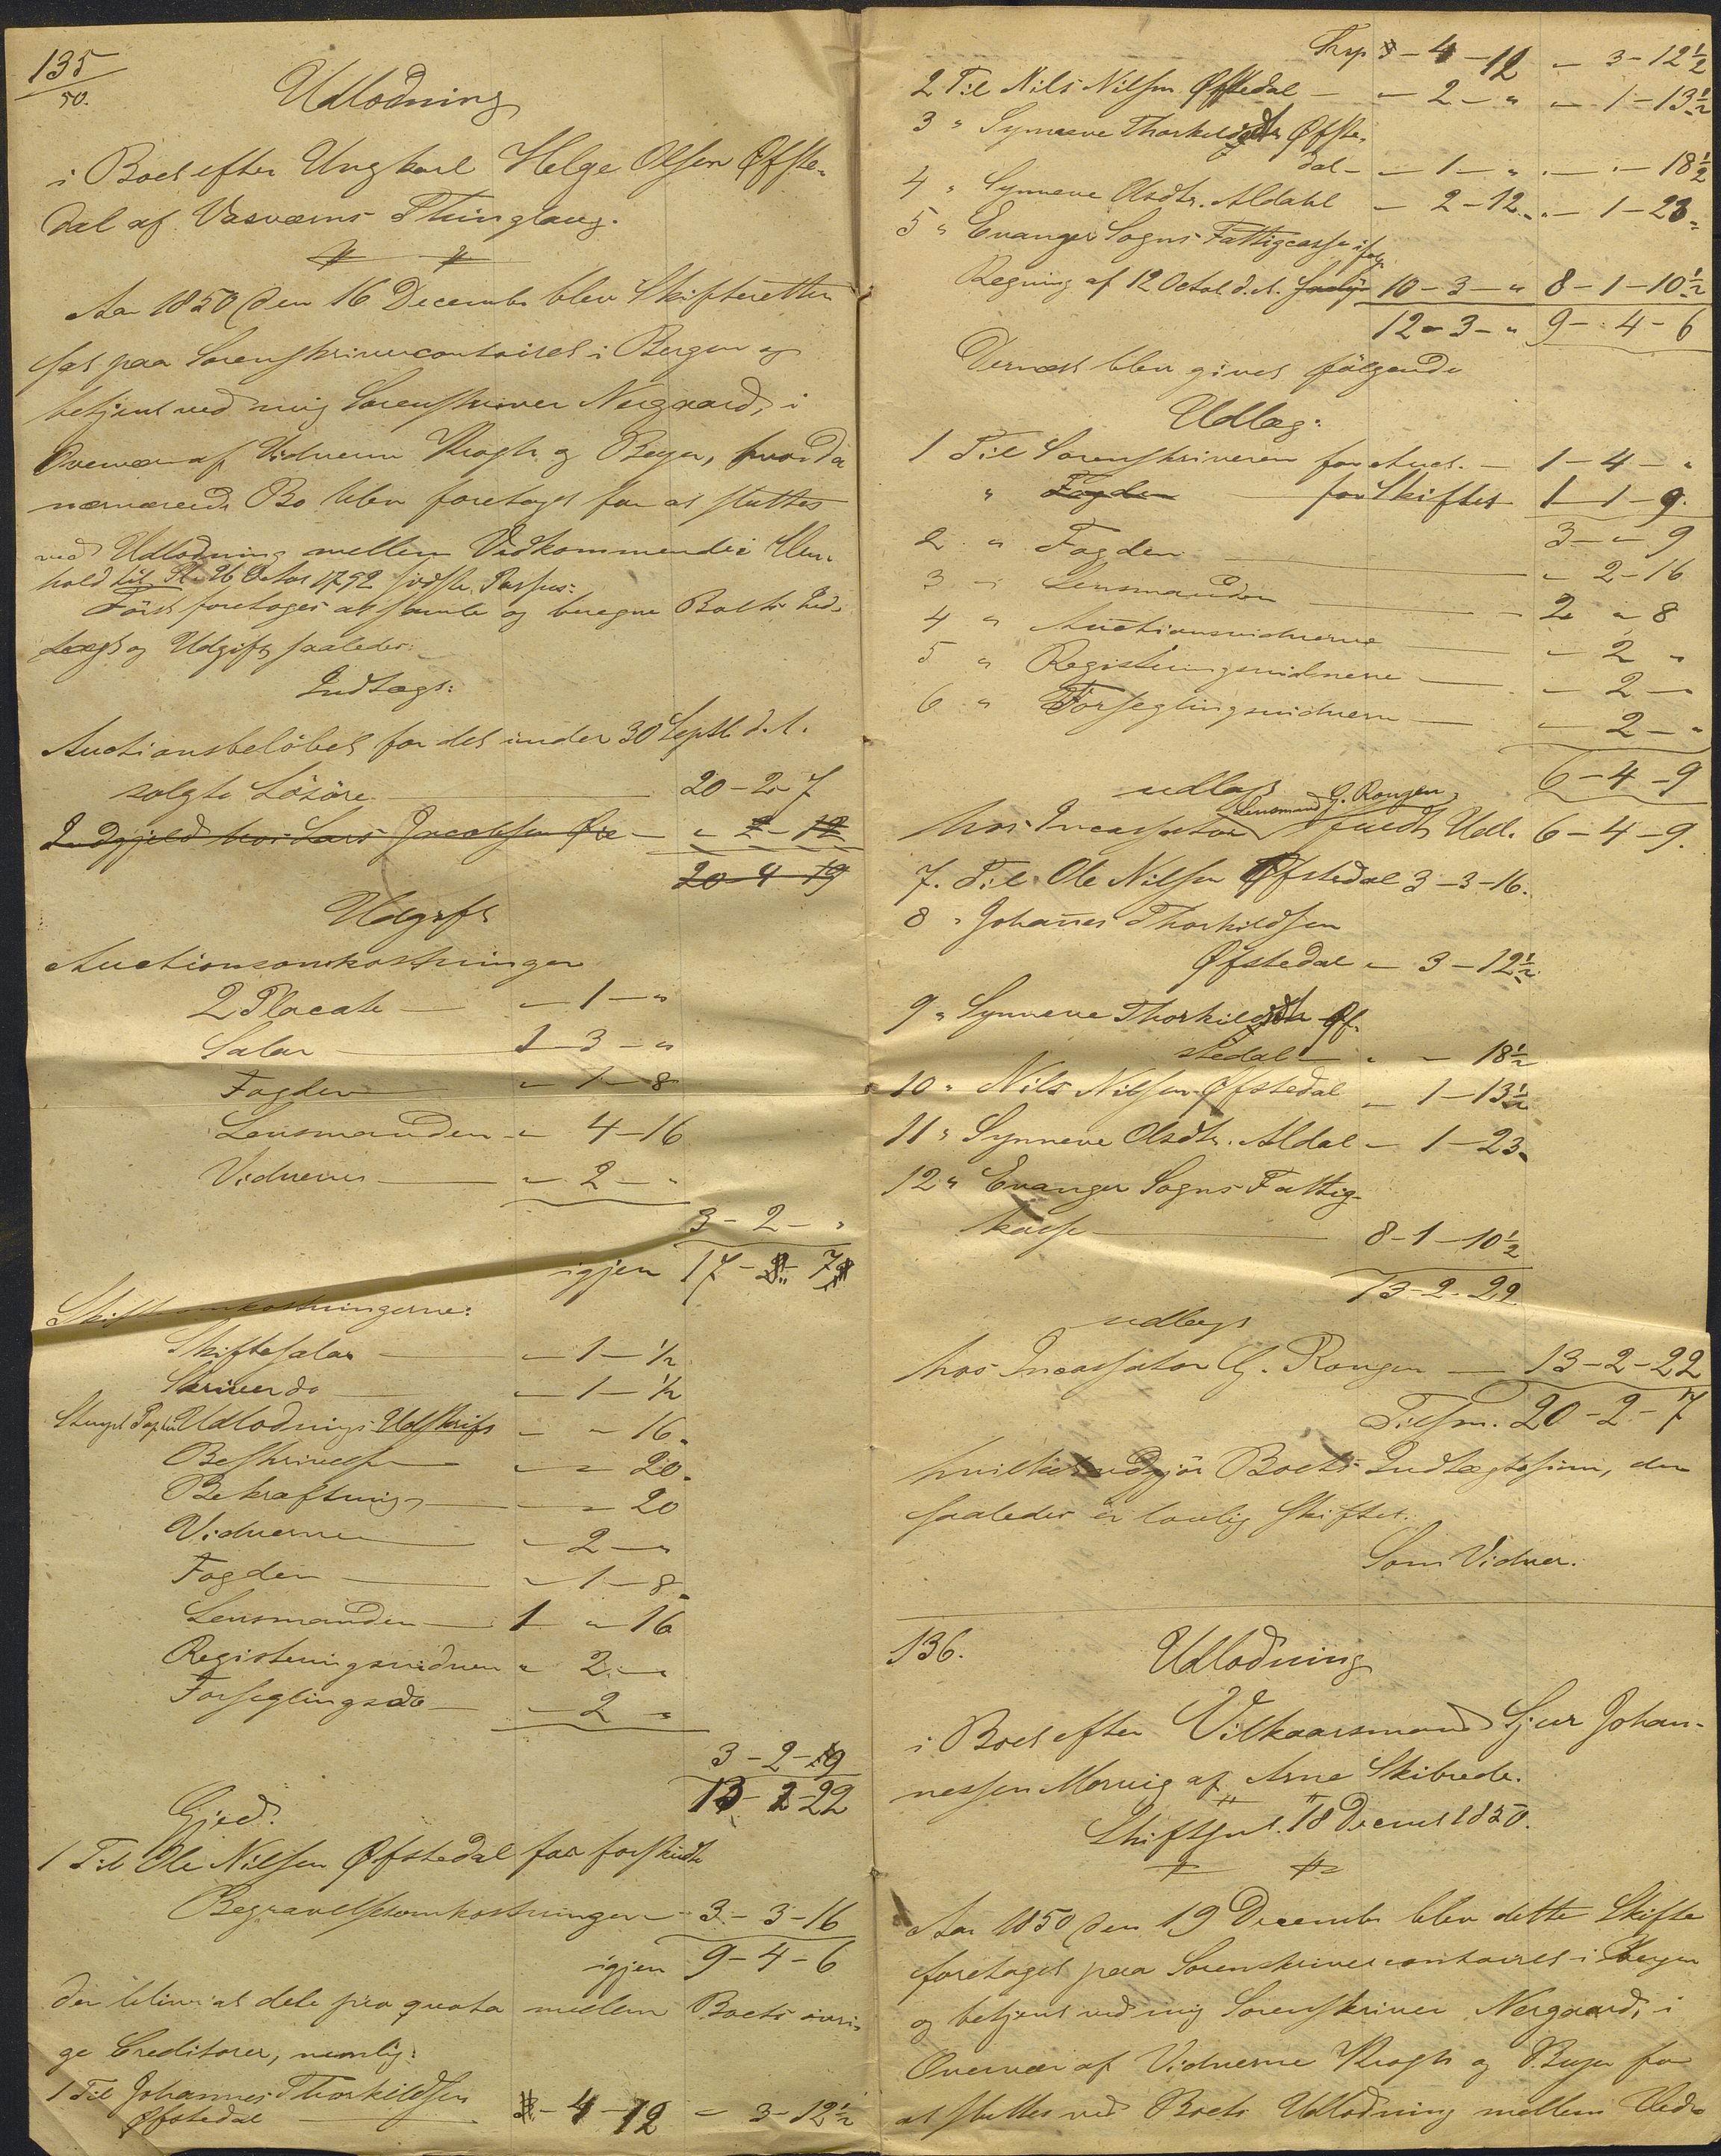 135
50.
Udlodning
i Boet efter Ungkarl Helge Olsen Øfste-
dal af Vasværns Thinglaug.
Aar 1850 den 16 Decembr blev Skifteretten
sat paa Sorenskrivercontoiret i Bergen og
betjent ved mig Sorenskriver Nergaard, i
Overvær af Vidnerne Krogh og Beyer, hvor da
nærværende Bo blev foretaget for at sluttes
ved Udlodning mellem Vedkommende i Hen-
hold til Pl. 26 Octor 1792 sidste Passus:
Først foretoges at samle og beregne Boets Ind-
tægt og Udgift saaledes:
Indtægt:
Auctionsbeløbet for det under 30 Septb. d. A.
solgte Løsøre 20-2-7
Indgjeld hos Lars Jacobsen " 2-12
20-4-19
Udgift
Auctionsomkostninger
2 Placate — " 1 — "
Salar — 1-3-"
Fogden — " 1-8
Lensmanden — " 4-16
Vidnerne — " 2 — "
3-2-"
igjen 17-"-7
Skifteomkostningerne:
Skiftesalar — " 1-½
Skriver do — " 1-½
Stempl. Papir Udlodnings Udskrift " " 16
Beskrivelse — " " 20
Bekræftning — " " 20
Vidnerne — " 2 — "
Fogden — " 1-8
Lensmanden — 1 " 16
Registeringsvidnerne " 2 — "
Forseglingsdo — " 2 "
3-2-9
13-2-22
Gjed.
1 Til Ole Nilsen Øfstedal for forskudte
Begravelsesomkostninger 3-3-16
igjen 9-4-6
der bliver at dele pro quota mellem Boets øvri-
ge Creditorer, nemlig:
1 Til Johannes Thorkildsen
Øfstedal — " 4-12 " 3-12½
Trsp " 4-12 " 3-12½
2 Til Nils Nilsen Øfstedal — " 2 — " " 1-13½
3 " Synneve Thorkildsdtr Øfste-
dal — " 1 — " " " 18½
4 " Synneve Olsdtr. Aldahl " 2-12 " 1-23
5 " Evanger Sogns Fattigcasse ifølge
Regning af 12 Octob. d. A. 10-3-" 8-1-10½
12-3-" 9-4-6
Dernæst blev givet følgende
Udlæg:
1 Til Sorenskriveren for Auct. — 1-4-"
" Fogden — for Skiftet 1-1-9
3-"-9
2 " Fogden — " 2-16
3 " Lensmanden — 2 " 8
4 " Auctionsvidnerne — " 2 "
5 " Registeringsvidnerne — " 2 — "
6 " Forseglingsvidnerne — " 2 — "
6-4-9
udlagt
hos Incassator Lensmand G. Rongen Udl. 6-4-9.
7. Til Ole Nilsen Øfstedal 3-3-16.
8 " Johannes Thorkildsen
Øfstedal " 3-12½
9 " Synneve Thorkildsdtr Øf-
stedal — " " 18½
10 " Nils Nilsen Øfstedal " 1-13½
11 " Synneve Olsdtr. Aldal " 1-23
12 " Evanger Sogns Fattig-
kasse — 8-1-10½
13-2-22
udlagt
hos Incassator G. Rongen — 13-2-22
Tilsm. 20-2-7
hvilket udgjør Boets Indtægtssum, der
saaledes er lovlig skiftet.
Som Vidner.
136.
Udlodning
i Boet efter Vilkaarsmand Sjur Johan-
nessen Mervig af Arne Skibrede.
Skiftesl. 18 Decmb 1850.
Aar 1850 den 19 Decembr blev dette Skifte
foretaget paa Sorenskrivercontoiret i Bergen
og betjent ved mig Sorenskriver Nergaard, i
Overvær af Vidnerne Krogh og Beyer for
at sluttes ved Boets Udlodning mellem Ved-